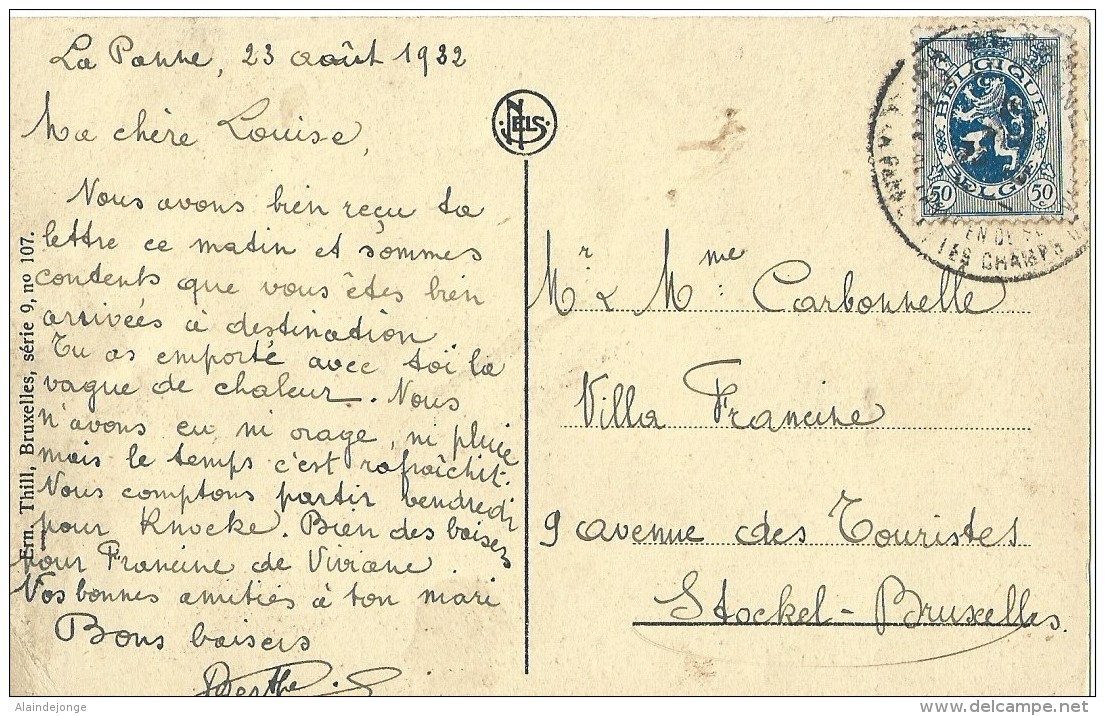 La Panne, 23 août 1932
Ma chère Louise,
Nous avons bien reçu ta
lettre ce matin et sommes
contents que vous êtes bien
arrivées à destination
Tu as emporté avec toi la
vague de chaleur. Nous
n'avons eu ni orage, ni pluie
mais le temps c'est rafraîchit.
Nous comptons partir vendredi
pour Knocke. Bien des baisers
pour Francine de Viviane.
Vos bonnes amitiés à ton mari
Bons baisers
Berthe
Ern. Thill, Bruxelles, série 9, nº 107.
NELS
BELGIQUE
BELGIË
50 c 50 c
LES CHAMPS
Mr & Mme Carbonnelle
Villa Francine
9 avenue des Touristes
Stockel-Bruxelles.
Alaindejonge
www.delcampe.net